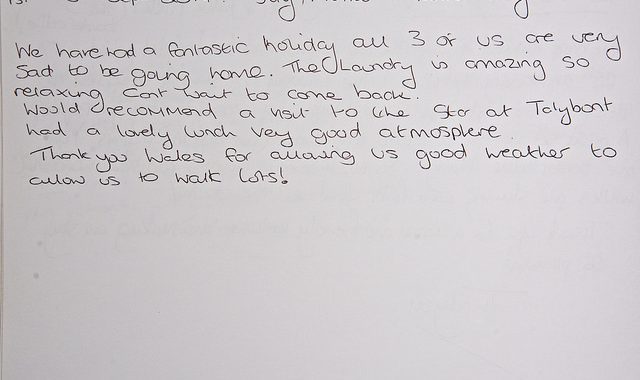 We have had a fantastic holiday all 3 of us are very
Sad to be going home. The Laundry is amazing so
relaxing Cant wait to come back.
Would recommend a visit to the Star at Talybont
had a lovely lunch very good atmosphere.
Thank you Wales for allowing us good weather to
allow us to walk Lots!